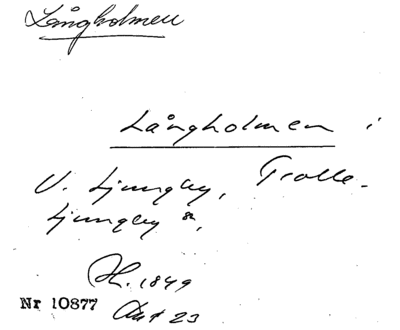 Långholmen
Långholmen i
V. Ljungby, Trolle-
Ljungby sn,
H. 1849
Nr 10877
Akt 23